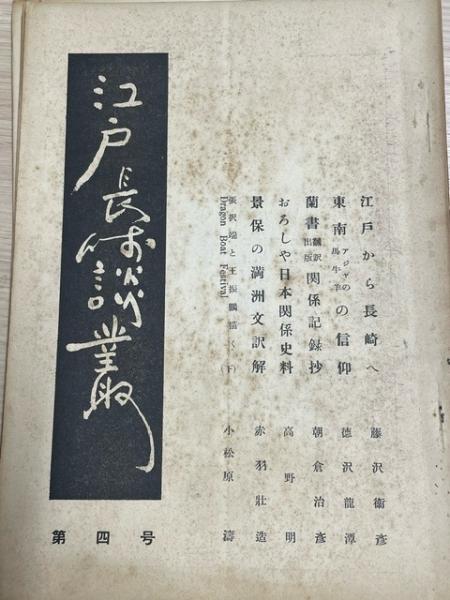 江戸から長崎へ 藤沢衛彦
東南アジヤの馬牛羊の信仰 徳沢龍潭
蘭書翻訳出版関係記録抄 朝倉治彦
おろしや日本関係史料 高野明
景保の満洲文訳解 赤羽壮造
張択端と王振鵬描く(下) 小松原濤
Dragon Boat Festival
江戸長崎談叢
第四号